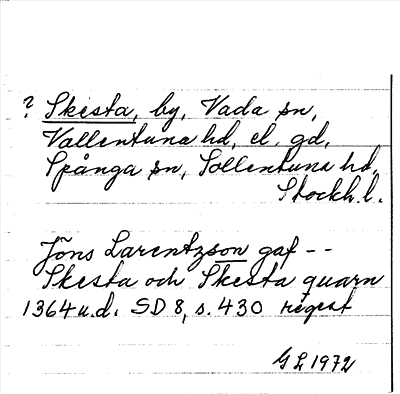 ? Skesta, by, Vada sn,
Vallentuna hd, el. gd,
Spånga sn, Sollentuna hd,
Stockh. l.
Jöns Larentzson gaf --
Skesta och Skesta quarn
1364 u.d. SD 8, s. 430 regest
GL 1972